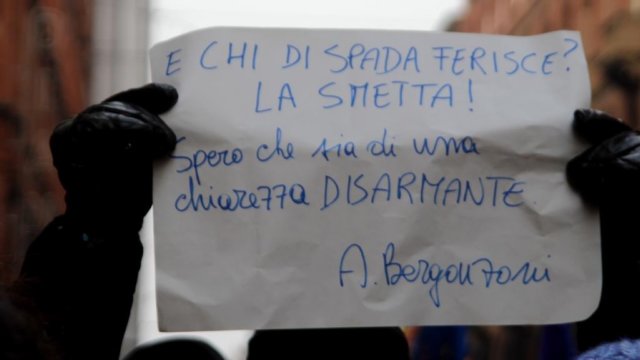 E CHI DI SPADA FERISCE?
LA SMETTA!
Spero che sia di una
chiarezza DISARMANTE
A. Bergonzoni